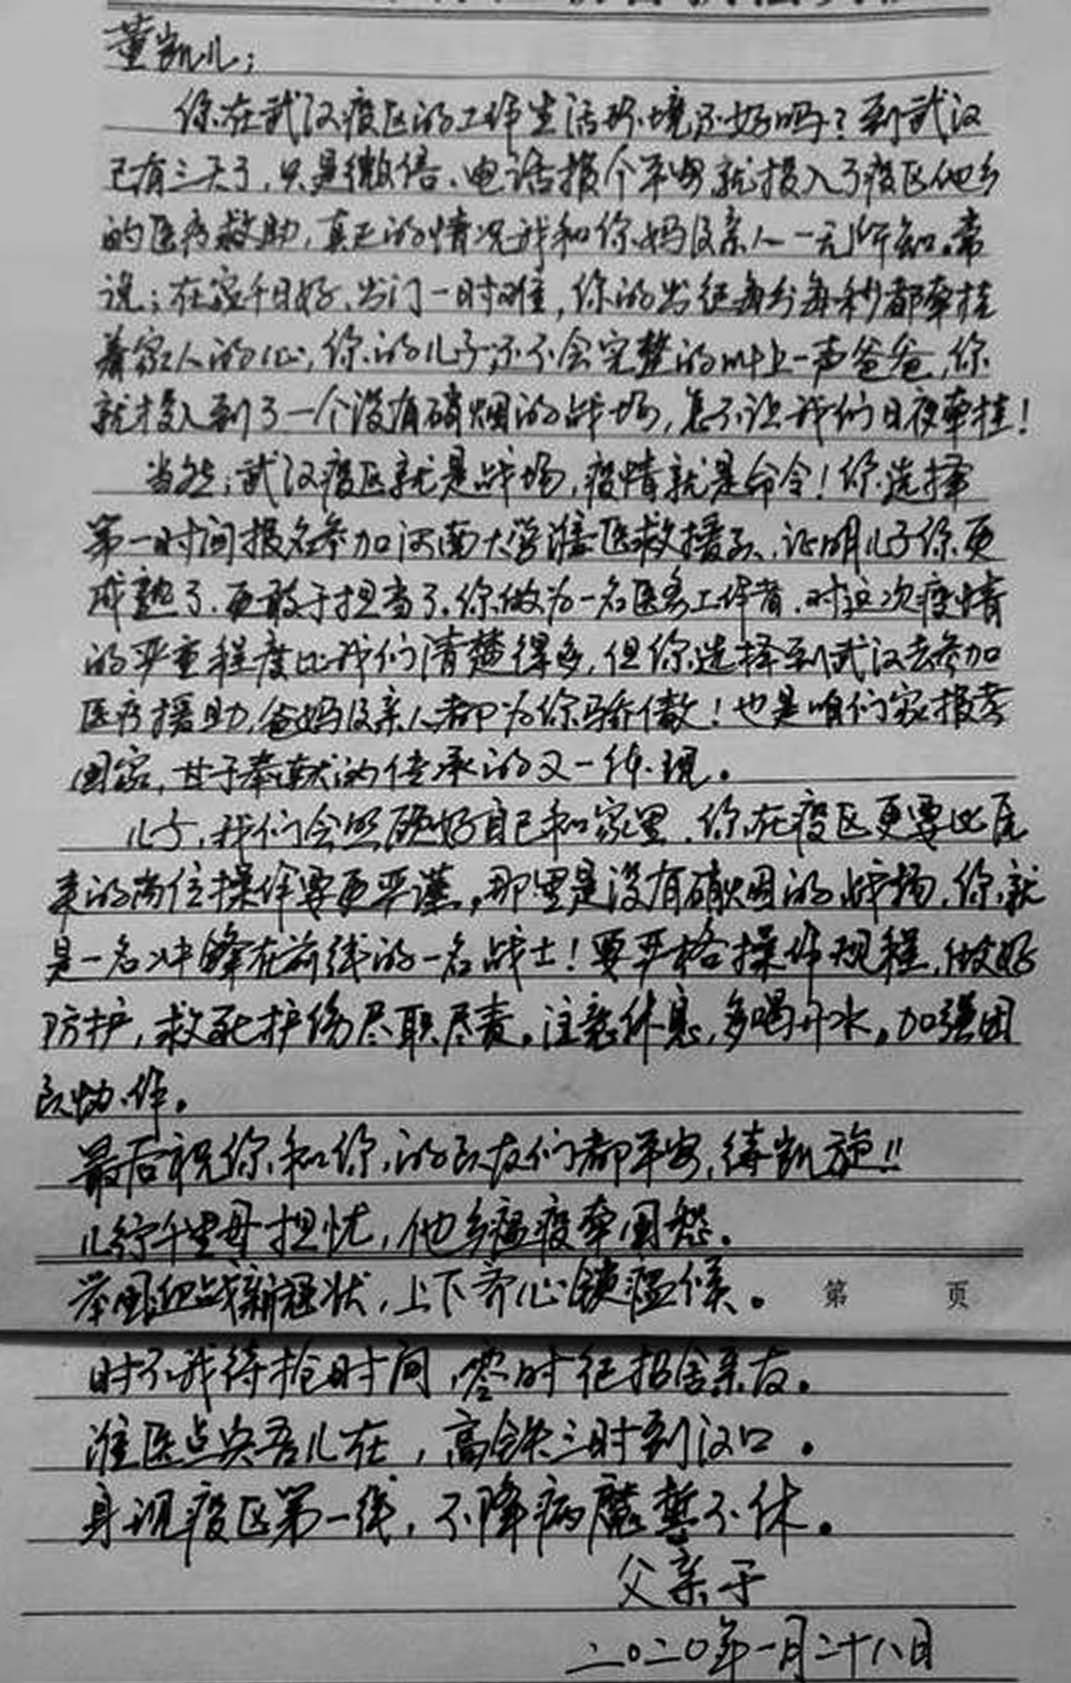 董凯儿：
你在武汉疫区的工作生活环境还好吗？到武汉
已有三天了，只是微信、电话报个平安，就投入了疫区他乡
的医疗救助，真正的情况我和你妈及亲人一无所知。常
说：在家千日好，出门一时难，你的出征每分每秒都牵挂
着家人的心，你的儿子还不会完整的叫上一声爸爸，你
就投入到了一个没有硝烟的战场，怎不让我们日夜牵挂！
当然，武汉疫区就是战场，疫情就是命令！你选择
第一时间报名参加河南大学淮医救援队，证明儿子你更
成熟了，更敢于担当了，你做为一名医务工作者，对这次疫情
的严重程度比我们清楚得多，但你选择到武汉去参加
医疗援助，爸妈及亲人都为你骄傲！也是咱们家报考
国家，甘于奉献的传承的又一体现。
儿子，我们会照顾好自己和家里，你在疫区更要比原
来的岗位操作要更严谨，那里是没有硝烟的战场，你就
是一名冲锋在前线的一名战士！要严格操作规程，做好
防护，救死护伤尽职尽责。注意休息，多喝开水。加强团
队协作。
最后祝你和你的队友们都平安，待凯旋!!
儿行千里母担忧，他乡瘟疫牵国愁。
举国迎战新冠状，上下齐心锁瘟候。
第 页
时不我待抢时间，零时征招舍亲友。
淮医点兵吾儿在，高铁三时到汉口。
身现疫区第一线，不降病魔誓不休。
父亲于
二〇二〇年一月二十八日